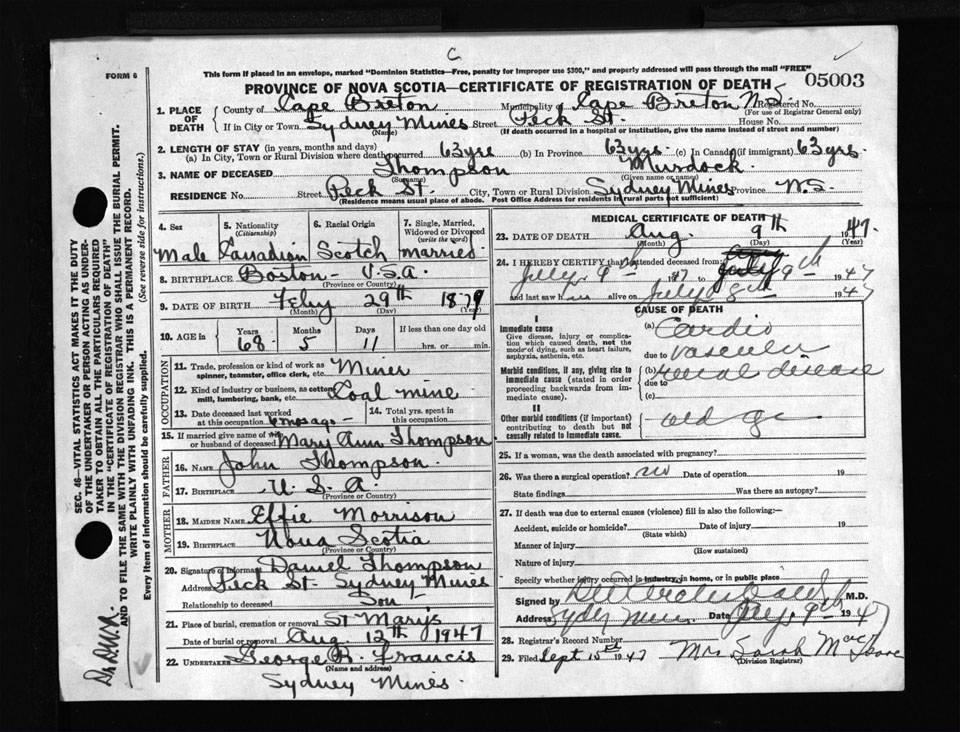 C
FORM 6
This form if placed in an envelope, marked "Dominion Statistics—Free, penalty for improper use $300," and properly addressed will pass through the mail "FREE"
PROVINCE OF NOVA SCOTIA—CERTIFICATE OF REGISTRATION OF DEATH
05003
1. PLACE OF DEATH
County of Cape Breton Municipality of Cape Breton N.S. Registered No.
(For use of Registrar General only)
If in City or Town Sydney Mines Street Peck St. House No.
(Name) (If death occurred in a hospital or institution, give the name instead of street and number)
2. LENGTH OF STAY (in years, months and days)
(a) In City, Town or Rural Division where death occurred 63 yrs (b) In Province 63 yrs. (c) In Canada (if immigrant) 63 yrs.
3. NAME OF DECEASED Thompson Murdock.
(Surname) (Given name or names)
RESIDENCE No. Street Peck St. City, Town or Rural Division Sydney Mines Province N.S.
(Residence means usual place of abode. Post Office Address for residents in rural parts not sufficient)
4. Sex
5. Nationality (Citizenship)
6. Racial Origin
7. Single, Married, Widowed or Divorced (write the word)
Male Canadian Scotch married
8. BIRTHPLACE Boston - U.S.A.
(Province or Country)
9. DATE OF BIRTH Feby 29th 1879
(Month) (Day) (Year)
10. AGE in
Years Months Days If less than one day old
68 5 11 hrs. or min.
OCCUPATION
11. Trade, profession or kind of work as spinner, teamster, office clerk, etc. Miner
12. Kind of industry or business, as cotton mill, lumbering, bank, etc. Coal mine
13. Date deceased last worked at this occupation 6 mos ago.
14. Total yrs. spent in this occupation
15. If married give name of wife or husband of deceased Mary Ann Thompson
FATHER
16. NAME John Thompson.
17. BIRTHPLACE U.S.A.
(Province or Country)
MOTHER
18. MAIDEN NAME Effie Morrison
19. BIRTHPLACE Nova Scotia
(Province or Country)
20. Signature of informant Daniel Thompson
Address Peck St. Sydney Mines
Relationship to deceased Son
21. Place of burial, cremation or removal St Marys
Date of burial or removal Aug. 12th 1947
22. UNDERTAKER George R. Francis
(Name and address)
Sydney Mines
MEDICAL CERTIFICATE OF DEATH
23. DATE OF DEATH Aug. 9th 1947.
(Month) (Day) (Year)
24. I HEREBY CERTIFY that I attended deceased from:
July 9th 1947 to 9th 1947
and last saw him alive on July 8th 1947
CAUSE OF DEATH
I
Immediate cause
Give disease, injury or complication which caused death, not the mode of dying, such as heart failure, asphyxia, asthenia, etc.
(a) Cardio
due to vascular
Morbid conditions, if any, giving rise to immediate cause (stated in order proceeding backwards from immediate cause).
(b) renal disease
due to
(c)
II
Other morbid conditions (if important) contributing to death but not causally related to immediate cause.
old age
25. If a woman, was the death associated with pregnancy?
26. Was there a surgical operation? no Date of operation 19
State findings Was there an autopsy?
27. If death was due to external causes (violence) fill in also the following:—
Accident, suicide or homicide? Date of injury 19
(State which)
Manner of injury
(How sustained)
Nature of injury
Specify whether injury occurred in industry, in home, or in public place
Signed by M.D.
Sydney Mines Date 9th 1947
28. Registrar's Record Number
29. Filed Sept 15th 1947 Mrs Sarah
(Division Registrar)
SEC. 46—VITAL STATISTICS ACT MAKES IT THE DUTY
OF THE UNDERTAKER OR PERSON ACTING AS UNDER-
TAKER TO OBTAIN ALL THE PARTICULARS REQUIRED
IN THE "CERTIFICATE OF REGISTRATION OF DEATH"
AND TO FILE THE SAME WITH THE DIVISION REGISTRAR WHO SHALL ISSUE THE BURIAL PERMIT.
WRITE PLAINLY WITH UNFADING INK. THIS IS A PERMANENT RECORD.
Every item of information should be carefully supplied. (See reverse side for instructions.)